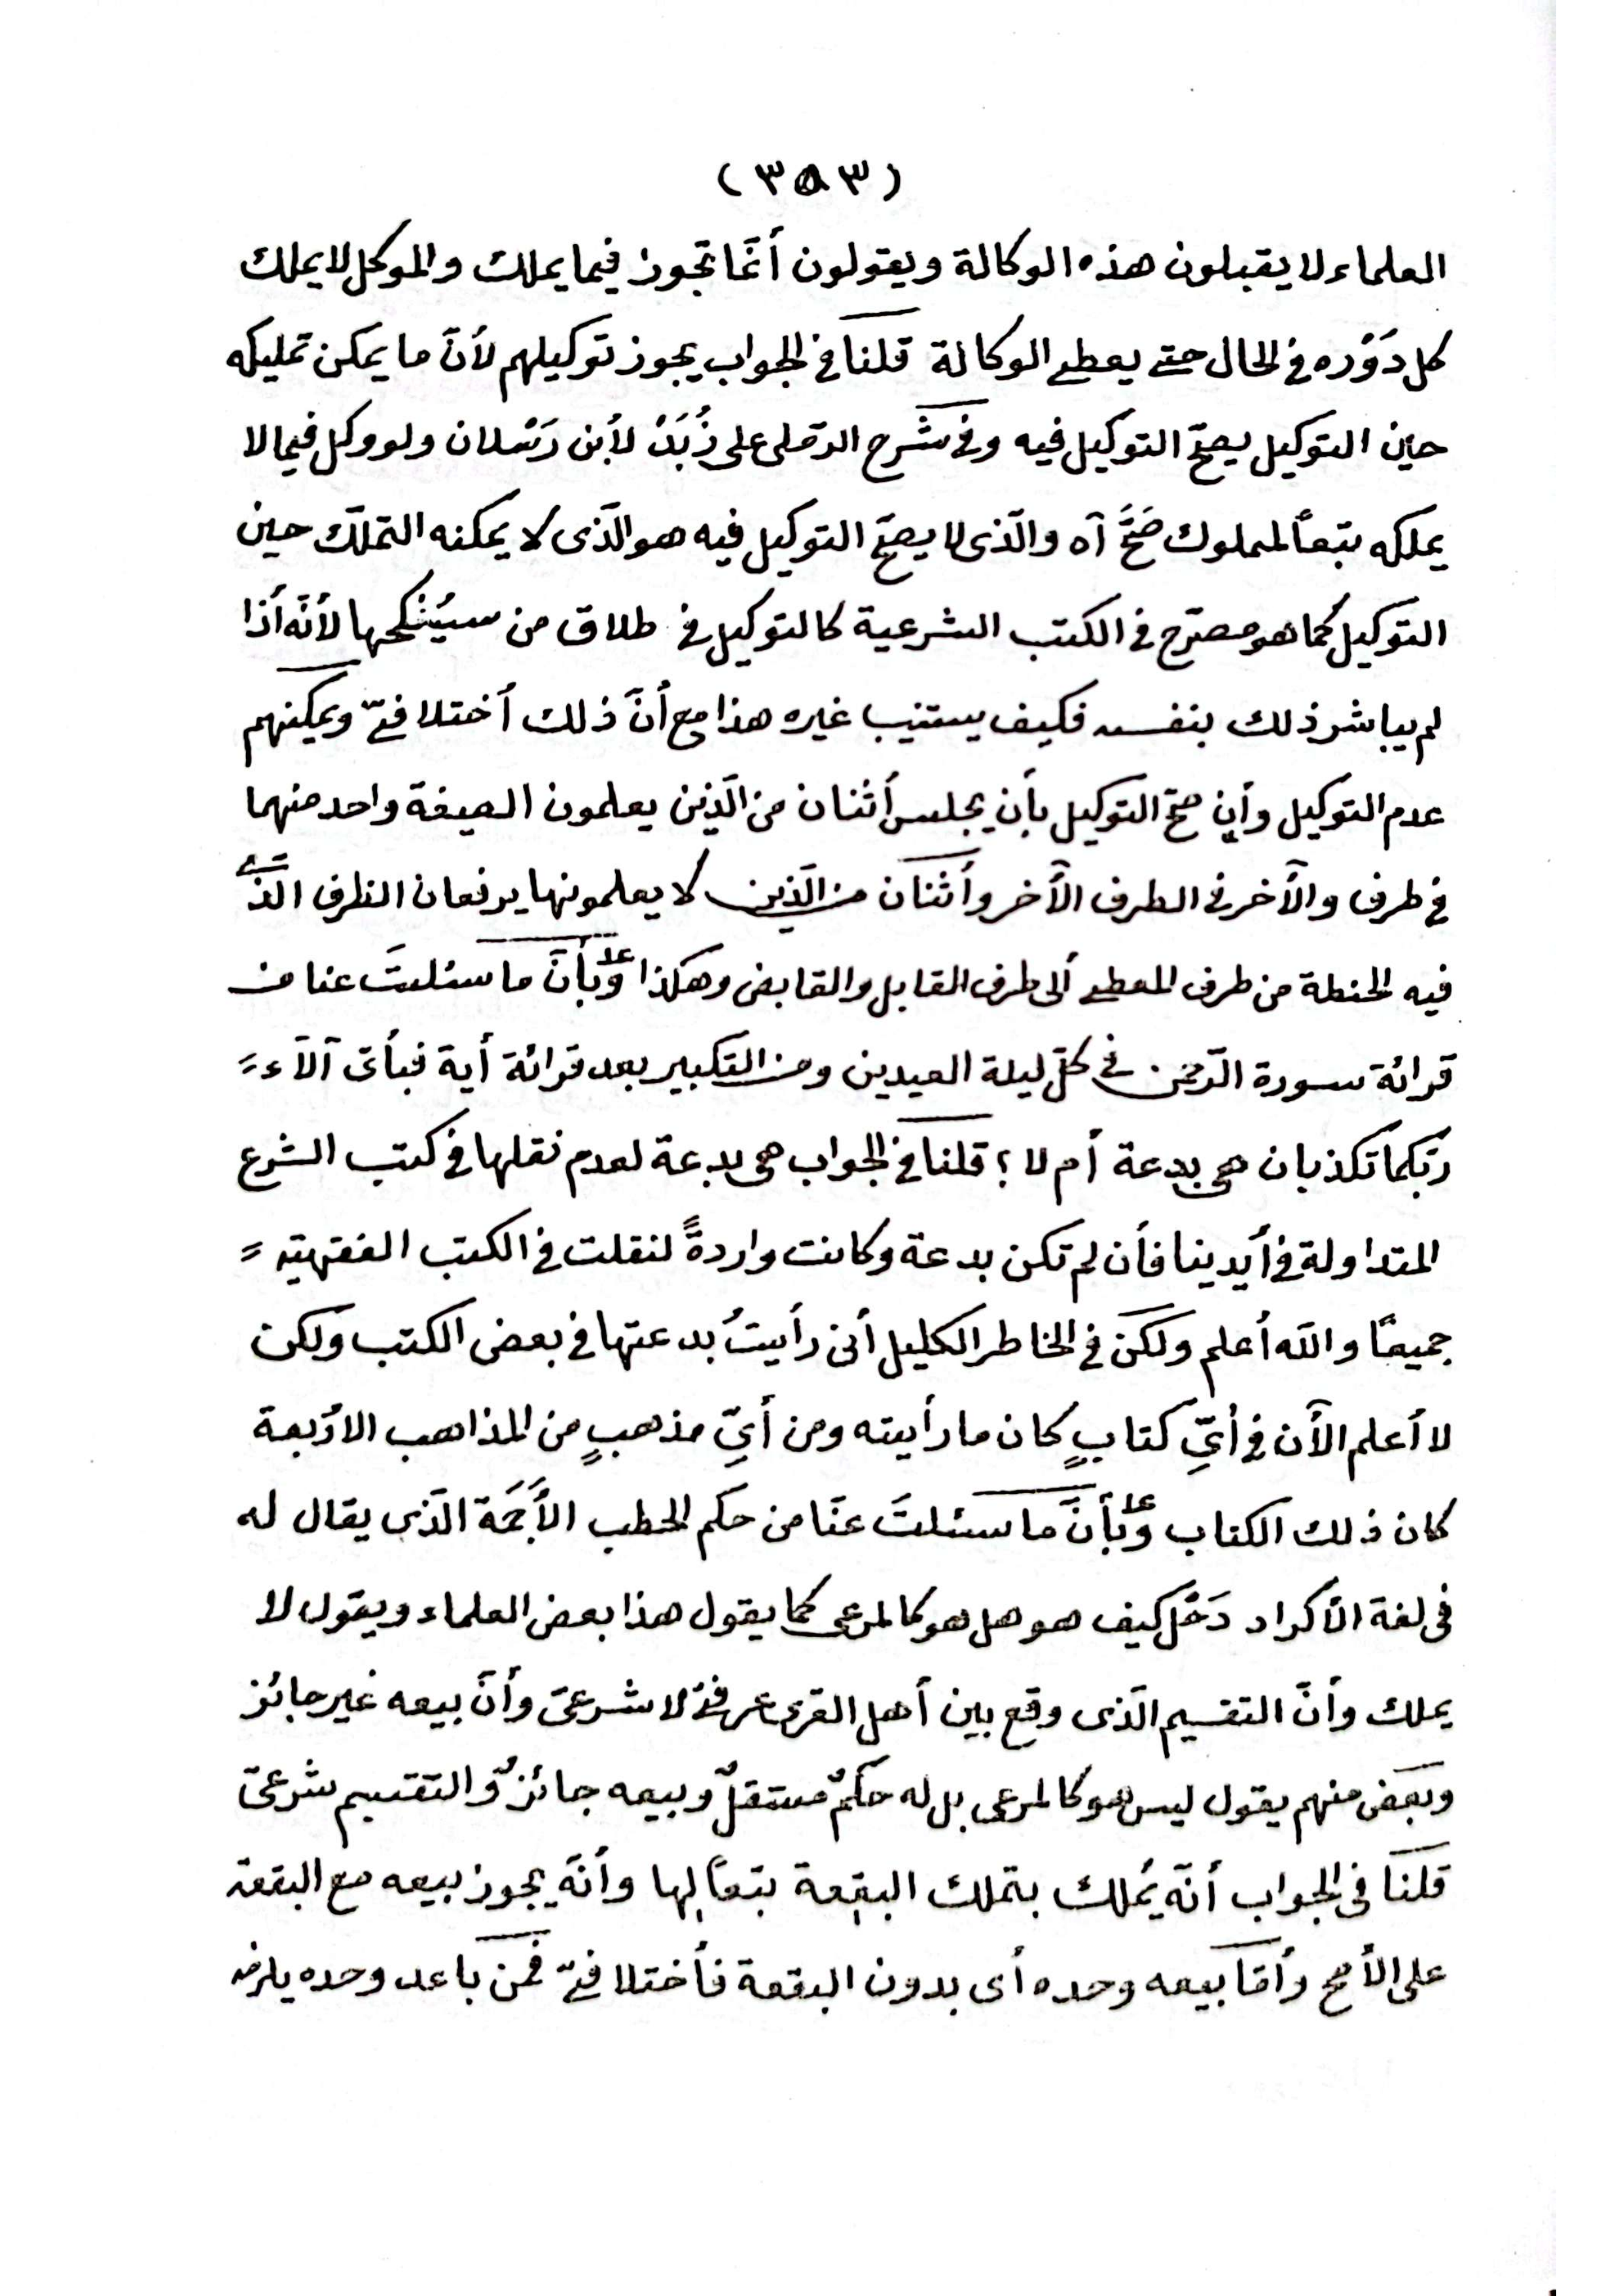 (٣٥٣)
العلماء لا يقبلون هذه الوكالة ويقولون أنّما تجوز فيما يملك والموكل لا يملك
كل دَوْره في الحال حتى يعطى الوكالة قلنا في الجواب يجوز توكيلهم لأنّ ما يمكن تمليكه
حين التوكيل يصحّ التوكيل فيه وفى شَرح الرّملى على زُبَدْ لأبن رَسْلان ولو وكل فيما لا
يملكه تبعاً لمملوك صَحَّ آه والّذى لا يصحّ التوكيل فيه هو الّذى لا يمكنه التملّك حين
التوكيل كما هو مصرّح فى الكتب الشرعية كالتوكيل فى طلاق من سيُنْكحها لأنّه أذا
لم يباشر ذلك بنفسه فكيف يستنيب غيره هذا مع أنّ ذلك أختلافىّ ويمكنهم
عدم التوكيل وأن صحّ التوكيل بأن يجلس أثنان من الّذين يعلمون الصيغة واحد منهما
فى طرف والآخر فى الطرف الآخر وأثنان من الّذين لا يعلمونها يرفعان الظرف الّذى
فيه الحنطة من طرف المعطى ألى طرف القابل والقابض وهكذا وبأنّ ما سئلتَ عنا من
قرائة سورة الرّحمن فى كلّ ليلة العيدين ومن التكبير بعد قرائة أية فبأىّ آلآء
ربّكما تكذبان هى بدعة أم لا؟ قلنا فى الجواب هى بدعة لعدم نقلها فى كتب الشرع
المتداولة فى أيدينا فأن لم تكن بدعة وكانت واردةً لنقلت فى الكتب الفقهيّة
جميعًا والله أعلم ولكن فى الخاطر الكليل أنى رأيتُ بدعتها فى بعض الكتب ولكن
لا أعلم الآن فى أىِّ كتابٍ كان ما رأيته ومن أىِّ مذهبٍ من المذاهب الأربعة
كان ذلك الكتاب وبأنّ ما سئلتَ عنّا من حكم الحطب الأَجَمَة الّذى يقال له
فى لغة الأكراد دَحْل كيف هو هل هو كالمرعى كما يقول هذا بعض العلماء ويقول لا
يملك وأنّ التقسيم الّذى وقع بين أهل القرى عرفىّ لا شرعىّ وأنّ بيعه غير جائز
وبعض منهم يقول ليس هو كالمرعى بل له حكمٌ مستقلٌ وبيعه جائزٌ والتقسيم شرعىّ
قلنا فى الجواب أنّه يُملك بتملك البقعة تبعاً لها وأنّه يجوز بيعه مع البقعة
على الأصح وأمّا بيعه وحده أى بدون البقعة فأختلافىّ فمن باعه وحده يلزمه